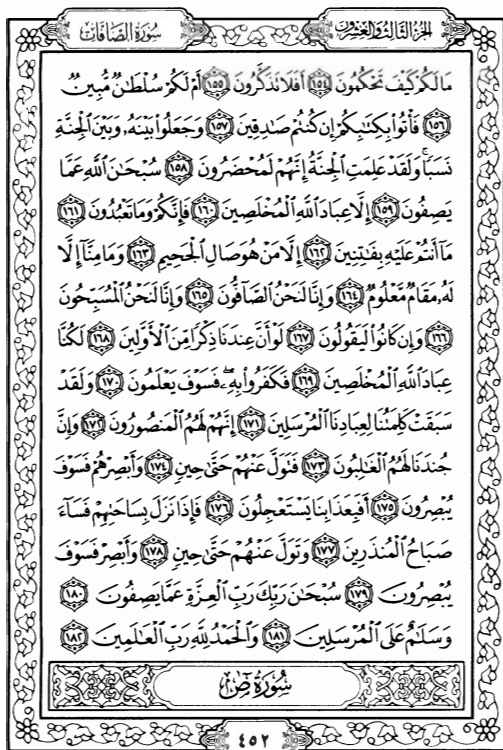 الجزء الثالث والعشرون
سورة الصافات
مَا لَكُمْ كَيْفَ تَحْكُمُونَ ١٥٤ أَفَلَا تَذَكَّرُونَ ١٥٥ أَمْ لَكُمْ سُلْطَانٌ مُّبِينٌ
١٥٦ فَأْتُوا بِكِتَابِكُمْ إِن كُنتُمْ صَادِقِينَ ١٥٧ وَجَعَلُوا بَيْنَهُ وَبَيْنَ الْجِنَّةِ
نَسَبًا وَلَقَدْ عَلِمَتِ الْجِنَّةُ إِنَّهُمْ لَمُحْضَرُونَ ١٥٨ سُبْحَانَ اللَّهِ عَمَّا
يَصِفُونَ ١٥٩ إِلَّا عِبَادَ اللَّهِ الْمُخْلَصِينَ ١٦٠ فَإِنَّكُمْ وَمَا تَعْبُدُونَ ١٦١
مَا أَنتُمْ عَلَيْهِ بِفَاتِنِينَ ١٦٢ إِلَّا مَنْ هُوَ صَالِ الْجَحِيمِ ١٦٣ وَمَا مِنَّا إِلَّا
لَهُ مَقَامٌ مَّعْلُومٌ ١٦٤ وَإِنَّا لَنَحْنُ الصَّافُّونَ ١٦٥ وَإِنَّا لَنَحْنُ الْمُسَبِّحُونَ
١٦٦ وَإِن كَانُوا لَيَقُولُونَ ١٦٧ لَوْ أَنَّ عِندَنَا ذِكْرًا مِّنَ الْأَوَّلِينَ ١٦٨ لَكُنَّا
عِبَادَ اللَّهِ الْمُخْلَصِينَ ١٦٩ فَكَفَرُوا بِهِ ۖ فَسَوْفَ يَعْلَمُونَ ١٧٠ وَلَقَدْ
سَبَقَتْ كَلِمَتُنَا لِعِبَادِنَا الْمُرْسَلِينَ ١٧١ إِنَّهُمْ لَهُمُ الْمَنصُورُونَ ١٧٢ وَإِنَّ
جُندَنَا لَهُمُ الْغَالِبُونَ ١٧٣ فَتَوَلَّ عَنْهُمْ حَتَّىٰ حِينٍ ١٧٤ وَأَبْصِرْهُمْ فَسَوْفَ
يُبْصِرُونَ ١٧٥ أَفَبِعَذَابِنَا يَسْتَعْجِلُونَ ١٧٦ فَإِذَا نَزَلَ بِسَاحَتِهِمْ فَسَاءَ
صَبَاحُ الْمُنذَرِينَ ١٧٧ وَتَوَلَّ عَنْهُمْ حَتَّىٰ حِينٍ ١٧٨ وَأَبْصِرْ فَسَوْفَ
يُبْصِرُونَ ١٧٩ سُبْحَانَ رَبِّكَ رَبِّ الْعِزَّةِ عَمَّا يَصِفُونَ ١٨٠
وَسَلَامٌ عَلَى الْمُرْسَلِينَ ١٨١ وَالْحَمْدُ لِلَّهِ رَبِّ الْعَالَمِينَ ١٨٢
سُورَةُ ص
٤٥٢